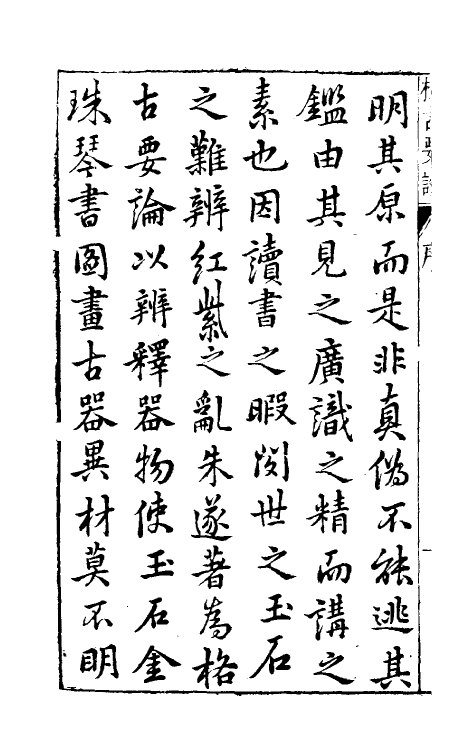 格古要論 序
明其原而是非真偽不能逃其
鑑由其見之廣識之精而講之
素也因讀書之暇閔世之玉石
之難辨紅紫之亂朱遂著為格
古要論以辨釋器物使玉石金
珠琴書圖畫古器異材莫不明